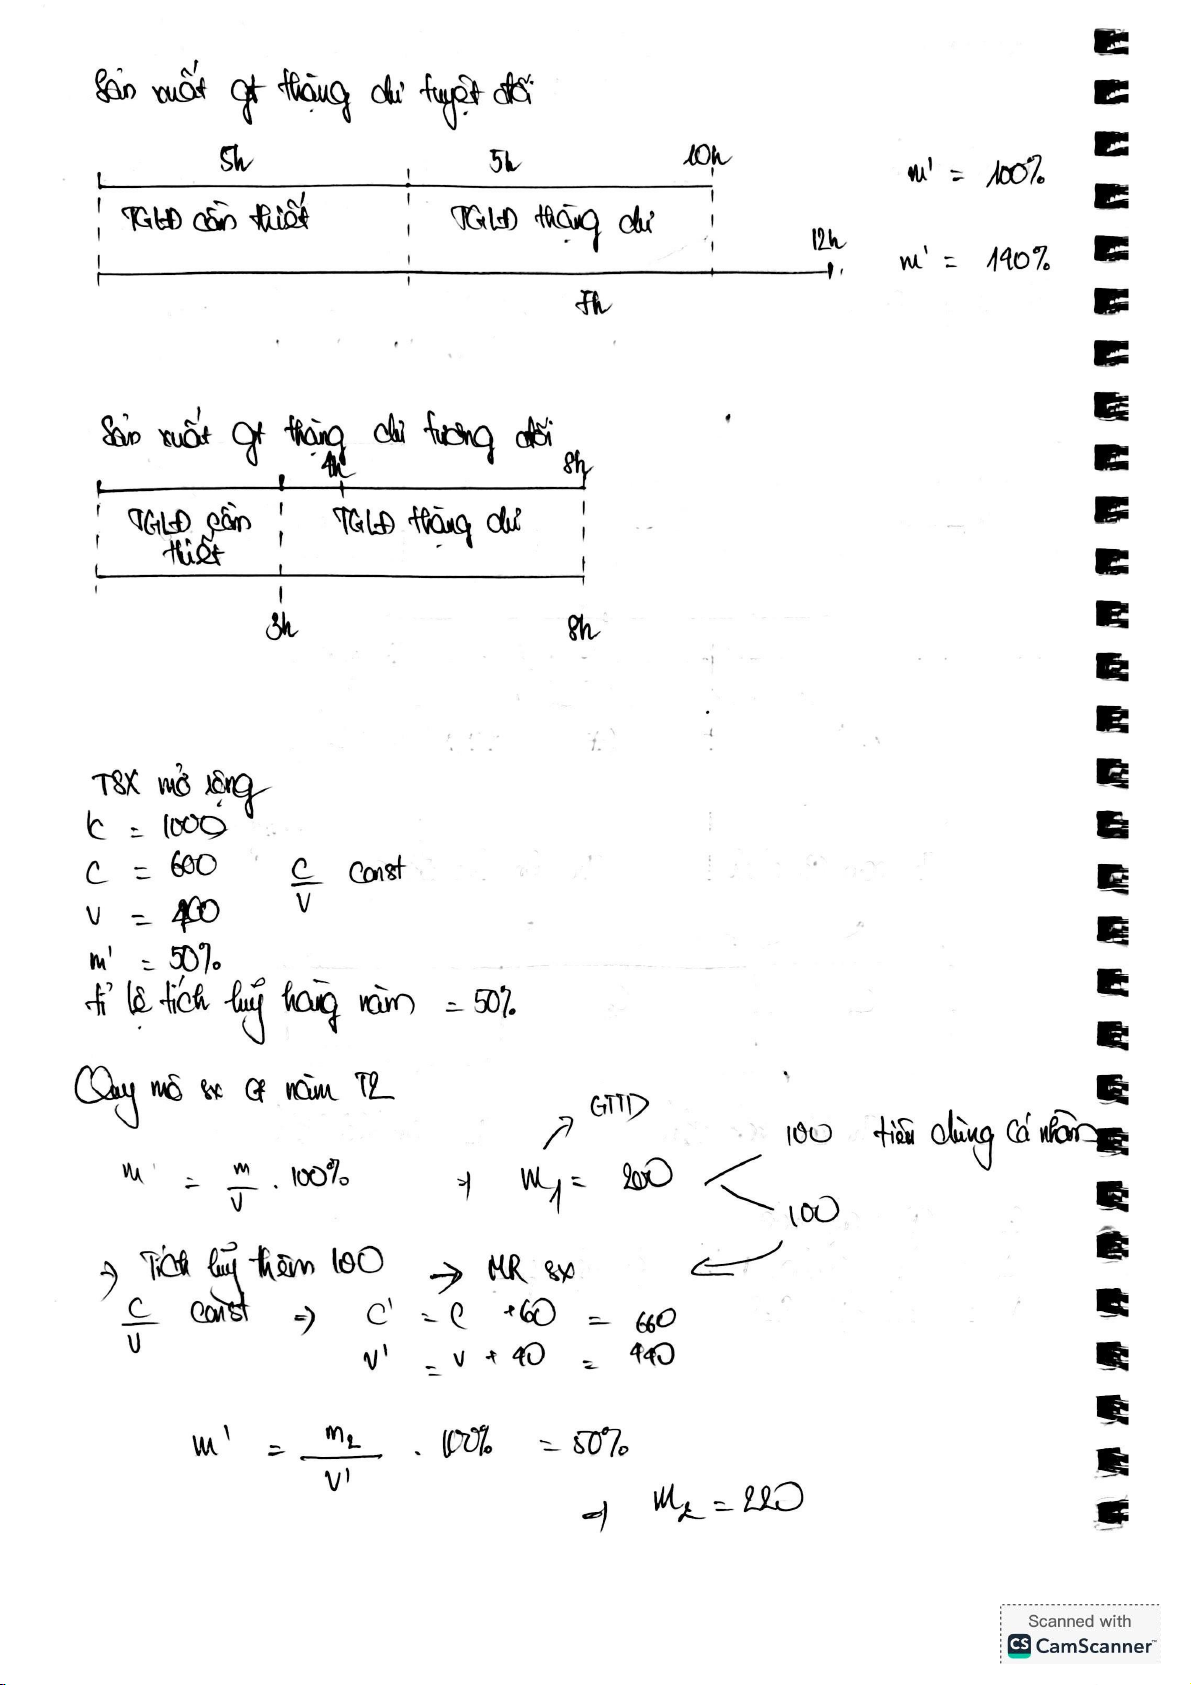 Sản xuất gt thặng dư tuyệt đối
5h 5h 10h
m' = 100%
TGLĐ cần thiết TGLĐ thặng dư
12h
m' = 140%
7h
Sản xuất gt thặng dư tương đối
4h 8h
TGLĐ cần thiết TGLĐ thặng dư
3h 8h
TSX mở rộng
K = 1000
C = 600 C/V const
V = 400
m' = 50%
tỉ lệ tích luỹ hàng năm = 50%
Quy mô sx ở năm T2
GTTD
100 tiêu dùng cá nhân
m' = m/V . 100% ⇒ m1 = 200
100
⇒ Tích luỹ thêm 100 → MR SX
C/V const ⇒ C' = C + 60 = 660
V' = V + 40 = 440
m' = m2/V' . 100% = 50%
⇒ m2 = 220
Scanned with
CS CamScanner™